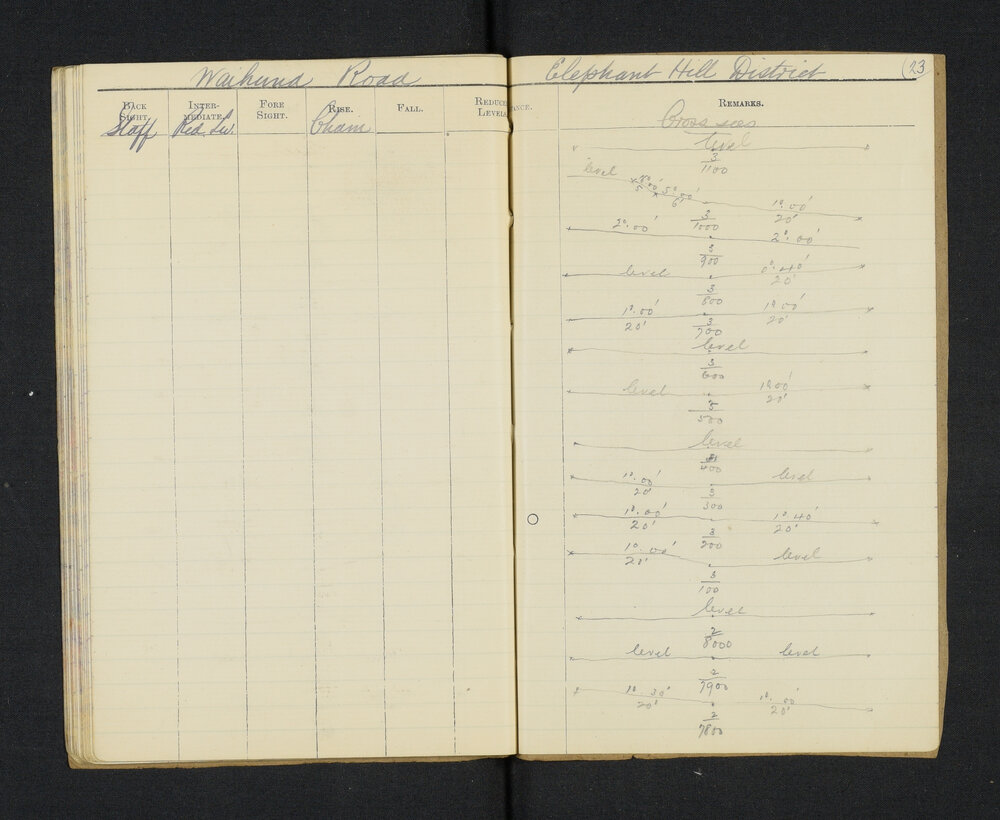 Waihuna Road
Elephant Hill District (23
BACK SIGHT. INTER-MEDIATE. FORE SIGHT. RISE. FALL. REDUCE LEVEL ANCE. REMARKS.
Staff Red. Lev. Chain
Cross secs
level
3/1100
level 5 5°.00' 6' 1°.00' 20'
3/1000
2°.00' 2°.00'
3/900
level 0°.40' 20'
3/800
1°.00' 20' 1°.00' 20'
3/700
level
3/600
level 1°.00' 20'
3/500
level
3/400
1°.00' 20' level
3/300
1°.00' 20' 1°.40' 20'
3/200
1°.00' 20' level
3/100
level
2/8000
level level
2/7900
1°.30' 20' 1°.00' 20'
2/7800